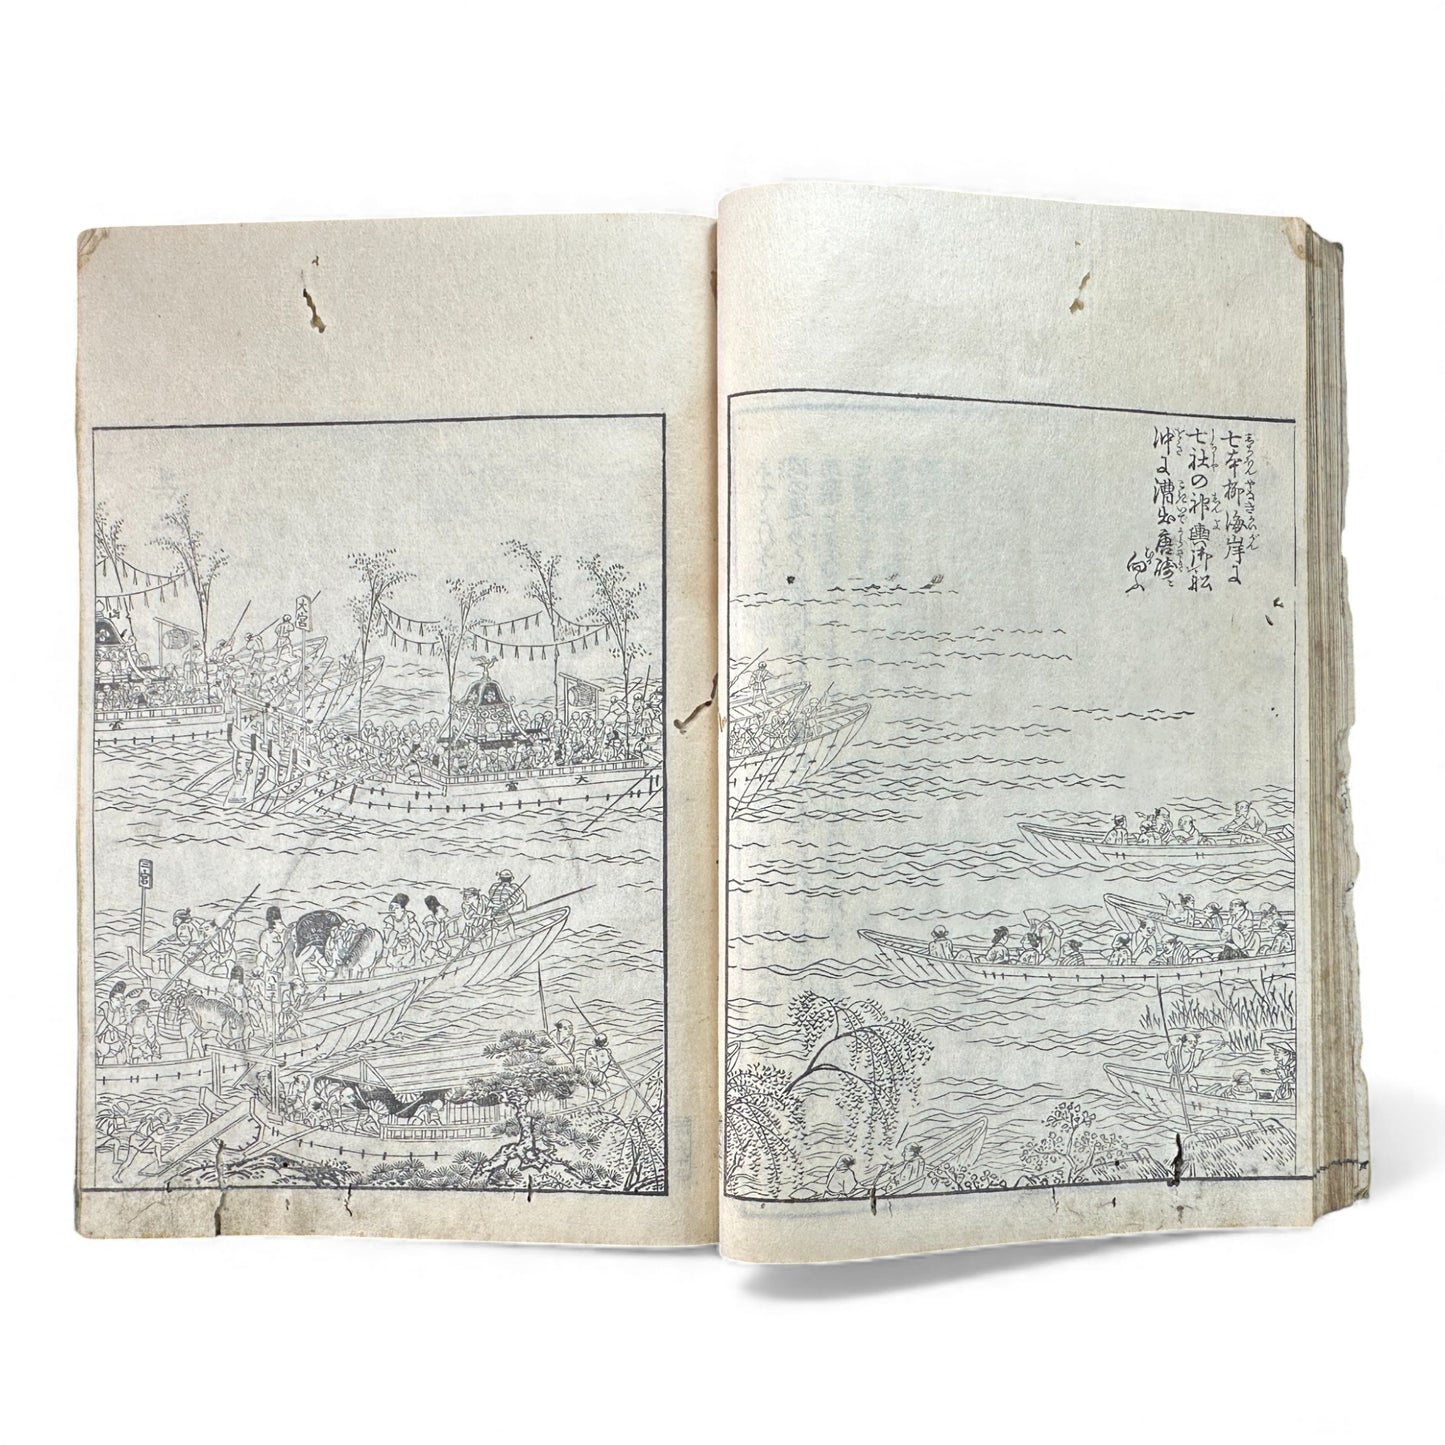 七本柳海岸に
七社の神輿御船
沖に漕出唐崎に
向ふ
大宮
大宮
三宮